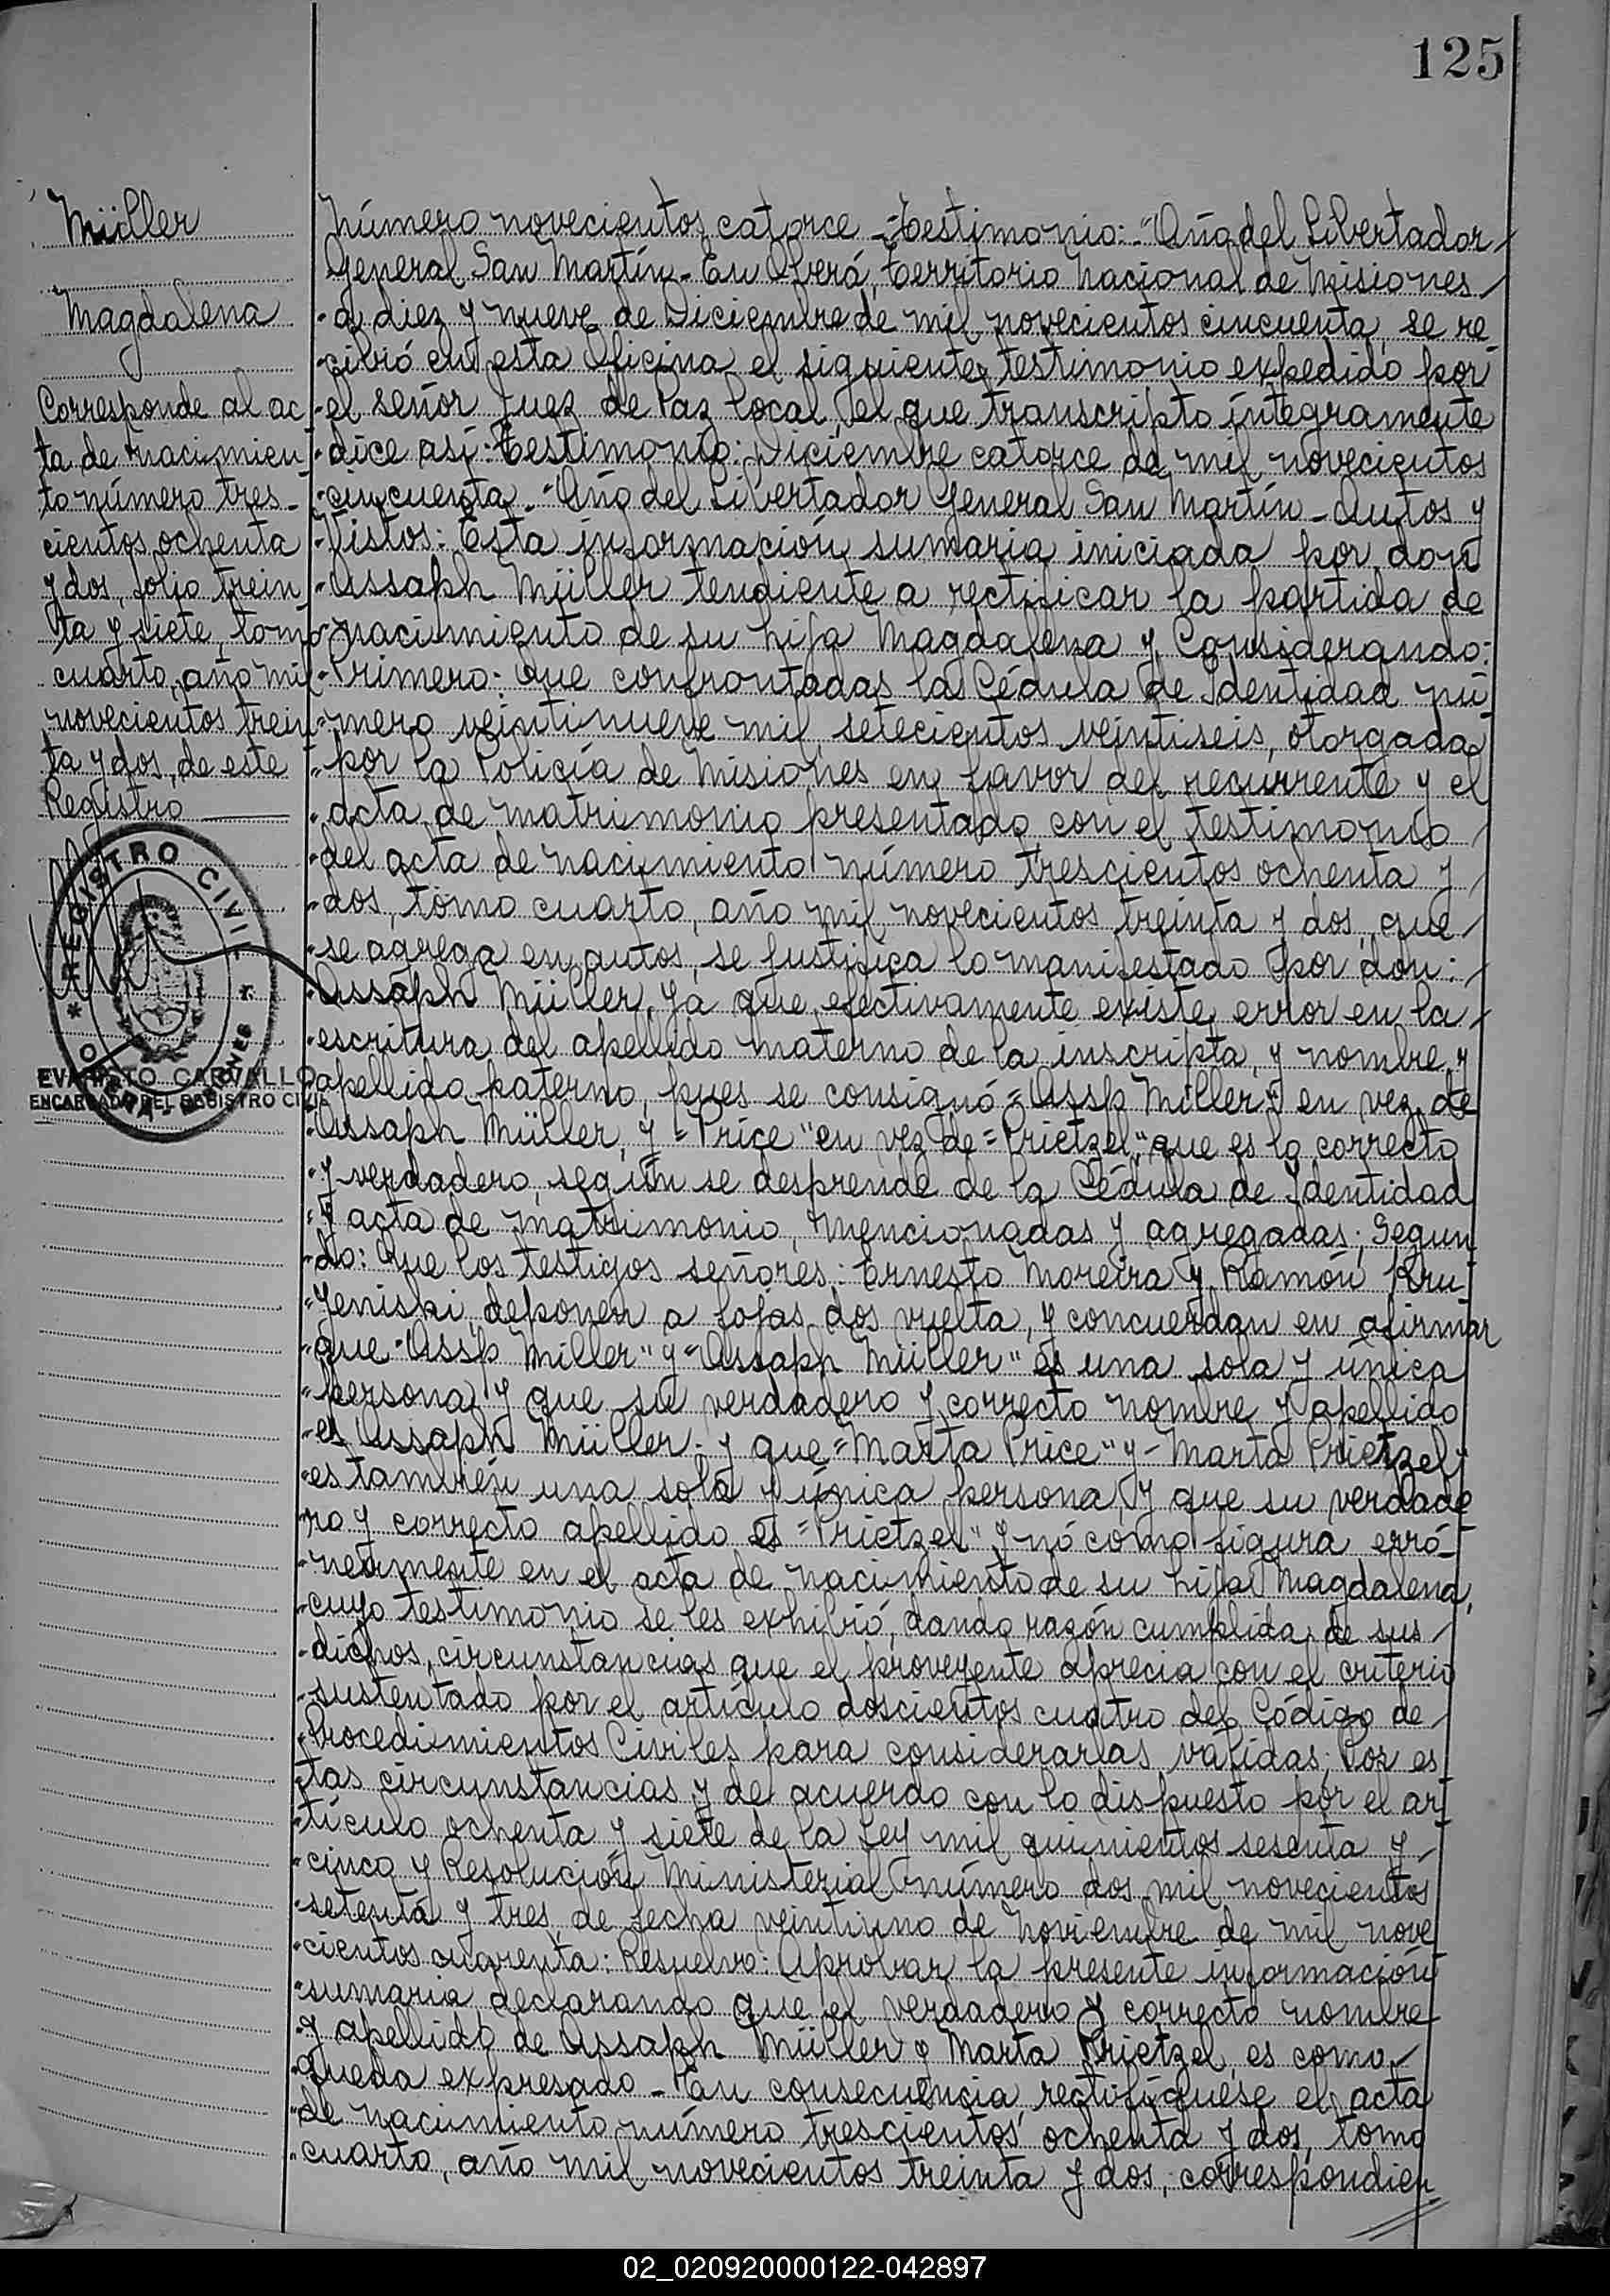 125
Müller
Magdalena
Corresponde al ac
ta de nacimien-
to número tres-
cientos ochenta
y dos, folio trein-
ta y siete, tomo
cuarto, año mil
novecientos trein
ta y dos, de este
Registro
REGISTRO CIVIL
EVARISTO CARVALLO
ENCARGADO DEL REGISTRO CIVIL
Número novecientos catorce - Testimonio: "Año del Libertador
General San Martín - En Oberá, Territorio Nacional de Misiones
a diez y nueve de Diciembre de mil novecientos cincuenta, se re
cibió en esta Oficina el siguiente testimonio expedido por
el señor Juez de Paz local, el que transcripto íntegramente
dice así: Testimonio: Diciembre catorce de mil novecientos
cincuenta - Año del Libertador General San Martín - Autos y
Vistos: Esta información sumaria iniciada por don
Assaph Müller tendiente a rectificar la partida de
nacimiento de su hija Magdalena y Considerando:
Primero: Que confrontadas la Cédula de Identidad nú
mero veintinueve mil setecientos veintiseis, otorgada
por la Policía de Misiones en favor del recurrente y el
acta de matrimonio presentado con el testimonio
del acta de nacimiento número trescientos ochenta y
dos, tomo cuarto, año mil novecientos treinta y dos, que
se agrega en autos, se justifica lo manifestado por don:
Assaph Müller, ya que efectivamente existe error en la
escritura del apellido materno de la inscripta, y nombre y
apellido paterno, pues se consignó "Assp Miller" en vez de
Assaph Müller, y "Price" en vez de "Prietzel", que es lo correcto
y verdadero, según se desprende de la Cédula de Identidad
y acta de matrimonio, mencionadas y agregadas; Segun
do: Que los testigos señores: Ernesto Moreira y Ramón Kru
yeniski, deponen a fojas dos vuelta, y concuerdan en afirmar
que "Assp Miller" y "Assaph Müller" es una sola y única
persona y que su verdadero y correcto nombre y apellido
es Assaph Müller - y que "Marta Price" y "Marta Prietzel"
es también una sola y única persona, y que su verdade
ro y correcto apellido es "Prietzel" y nó como figura erró-
neamente en el acta de nacimiento de su hija Magdalena,
cuyo testimonio se les exhibió, dando razón cumplida de sus
dichos, circunstancias que el proveyente aprecia con el criterio
sustentado por el artículo doscientos cuatro del Código de
Procedimientos Civiles para considerarlas válidas; Por es
tas circunstancias y de acuerdo con lo dispuesto por el ar
tículo ochenta y siete de la Ley mil quinientos sesenta y
cinco y Resolución Ministerial número dos mil novecientos
setenta y tres, de fecha veintiuno de Noviembre de mil nove
cientos cuarenta: Resuelvo: Aprobar la presente información
sumaria, declarando que el verdadero y correcto nombre
y apellido de Assaph Müller y Marta Prietzel, es como
queda expresado - En consecuencia, rectifíquese el acta
de nacimiento número trescientos ochenta y dos, tomo
cuarto, año mil novecientos treinta y dos, correspondien
02_020920000122-042897